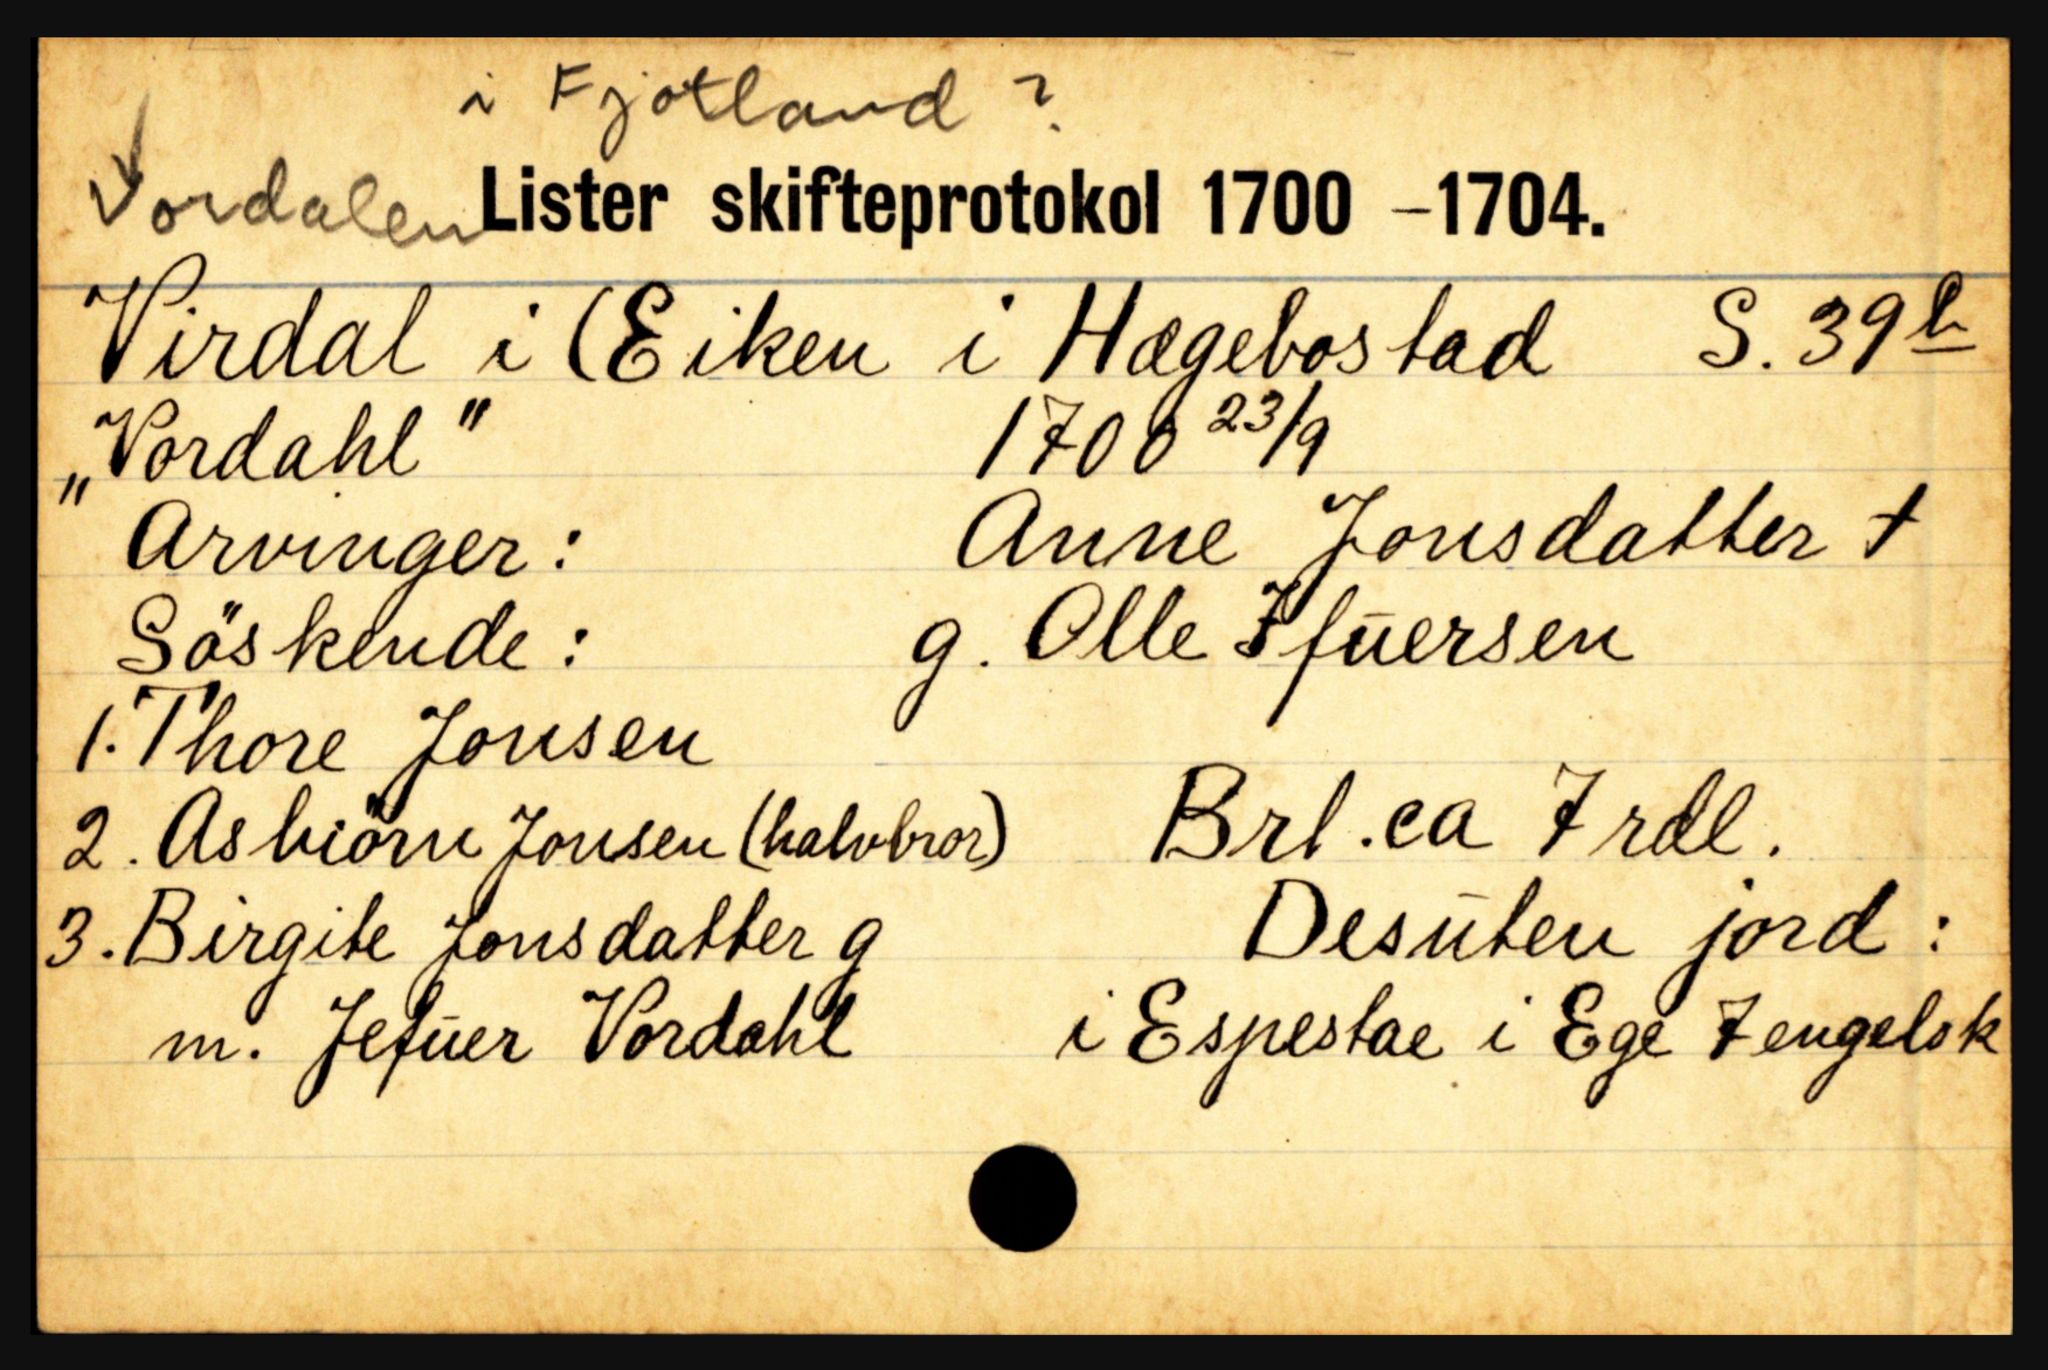 i Fjotland ?
Vordalen Lister skifteprotokol 1700 – 1704.
Virdal i (Eiken i Hægebostad S. 39 b
„Vordahl" 1700 23/9
Arvinger: Anne Jonsdatter †
Söskende: g. Olle Ifūersen
1. Thore Jonsen
2. Asbiörn Jonsen (halvbror) Brl. ca 7 rdl.
3. Birgite Jonsdatter g Desūten jord:
m. Jefūer Vordahl i Espestae i Ege 7 engelsk